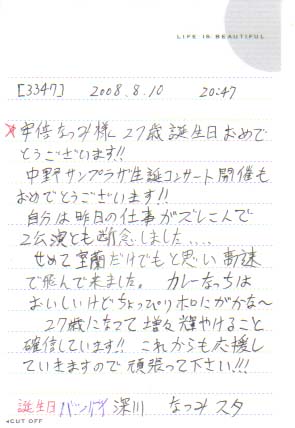 LIFE IS BEAUTIFUL
[3347] 2008.8.10 20:47
安倍なつみ様 27歳誕生日おめで
とうございます!!
中野サンプラザ生誕コンサート開催も
おめでとうございます!!
自分は昨日の仕事がズレこんで
2公演とも断念しました....
せめて室蘭だけでもと思い高速
で飛んで来ました。カレーなっちは
おいしいけどちょっぴりホロにがかな~
27歳になって増々輝やけること
確信しています!! これからも応援し
ていきますので頑張って下さい!!!
誕生日 バンザイ 深川 なつみスタ
CUT OFF